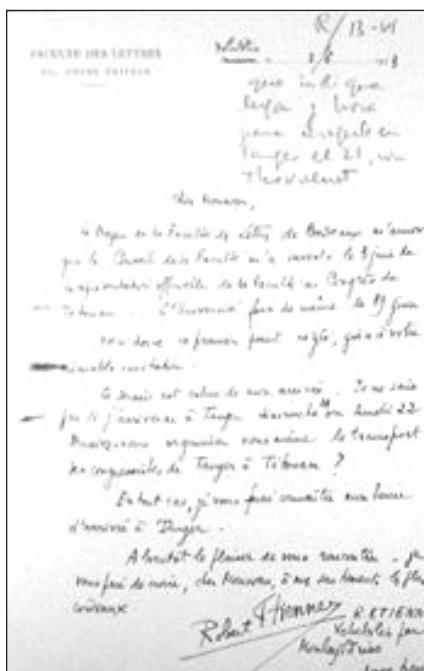 R/ 13-VI
FACULTÉ DES LETTRES
20, COURS PASTEUR
Volubilis
que indique
lugar y hora
para recogerlo en
Tanger el 21, sin
Cher Monsieur,
Le Doyen de la Faculté des Lettres de Bordeaux m'annonce
que le Conseil de la Faculté m'a investi le 8 juin de
représentation officielle de la Faculté au Congrès de
Tétouan. L'Université fera de même le 19 juin
Voici donc ce premier point réglé, grâce à votre
aimable invitation.
Le second est celui de mon arrivée. Je ne sais
pas si j'arriverai à Tanger dimanche ou lundi 22
organiser vous-même le transport
des congressistes de Tanger à Tétouan ?
En tout cas, je vous ferai connaître mon heure
d'arrivée à Tanger.
A bientôt le plaisir de vous rencontrer.
vous prie de croire, cher Monsieur, à mes sentiments les plus
cordiaux
Robert Etienne
R. ETIENNE
Volubilis par
Moulay Idriss